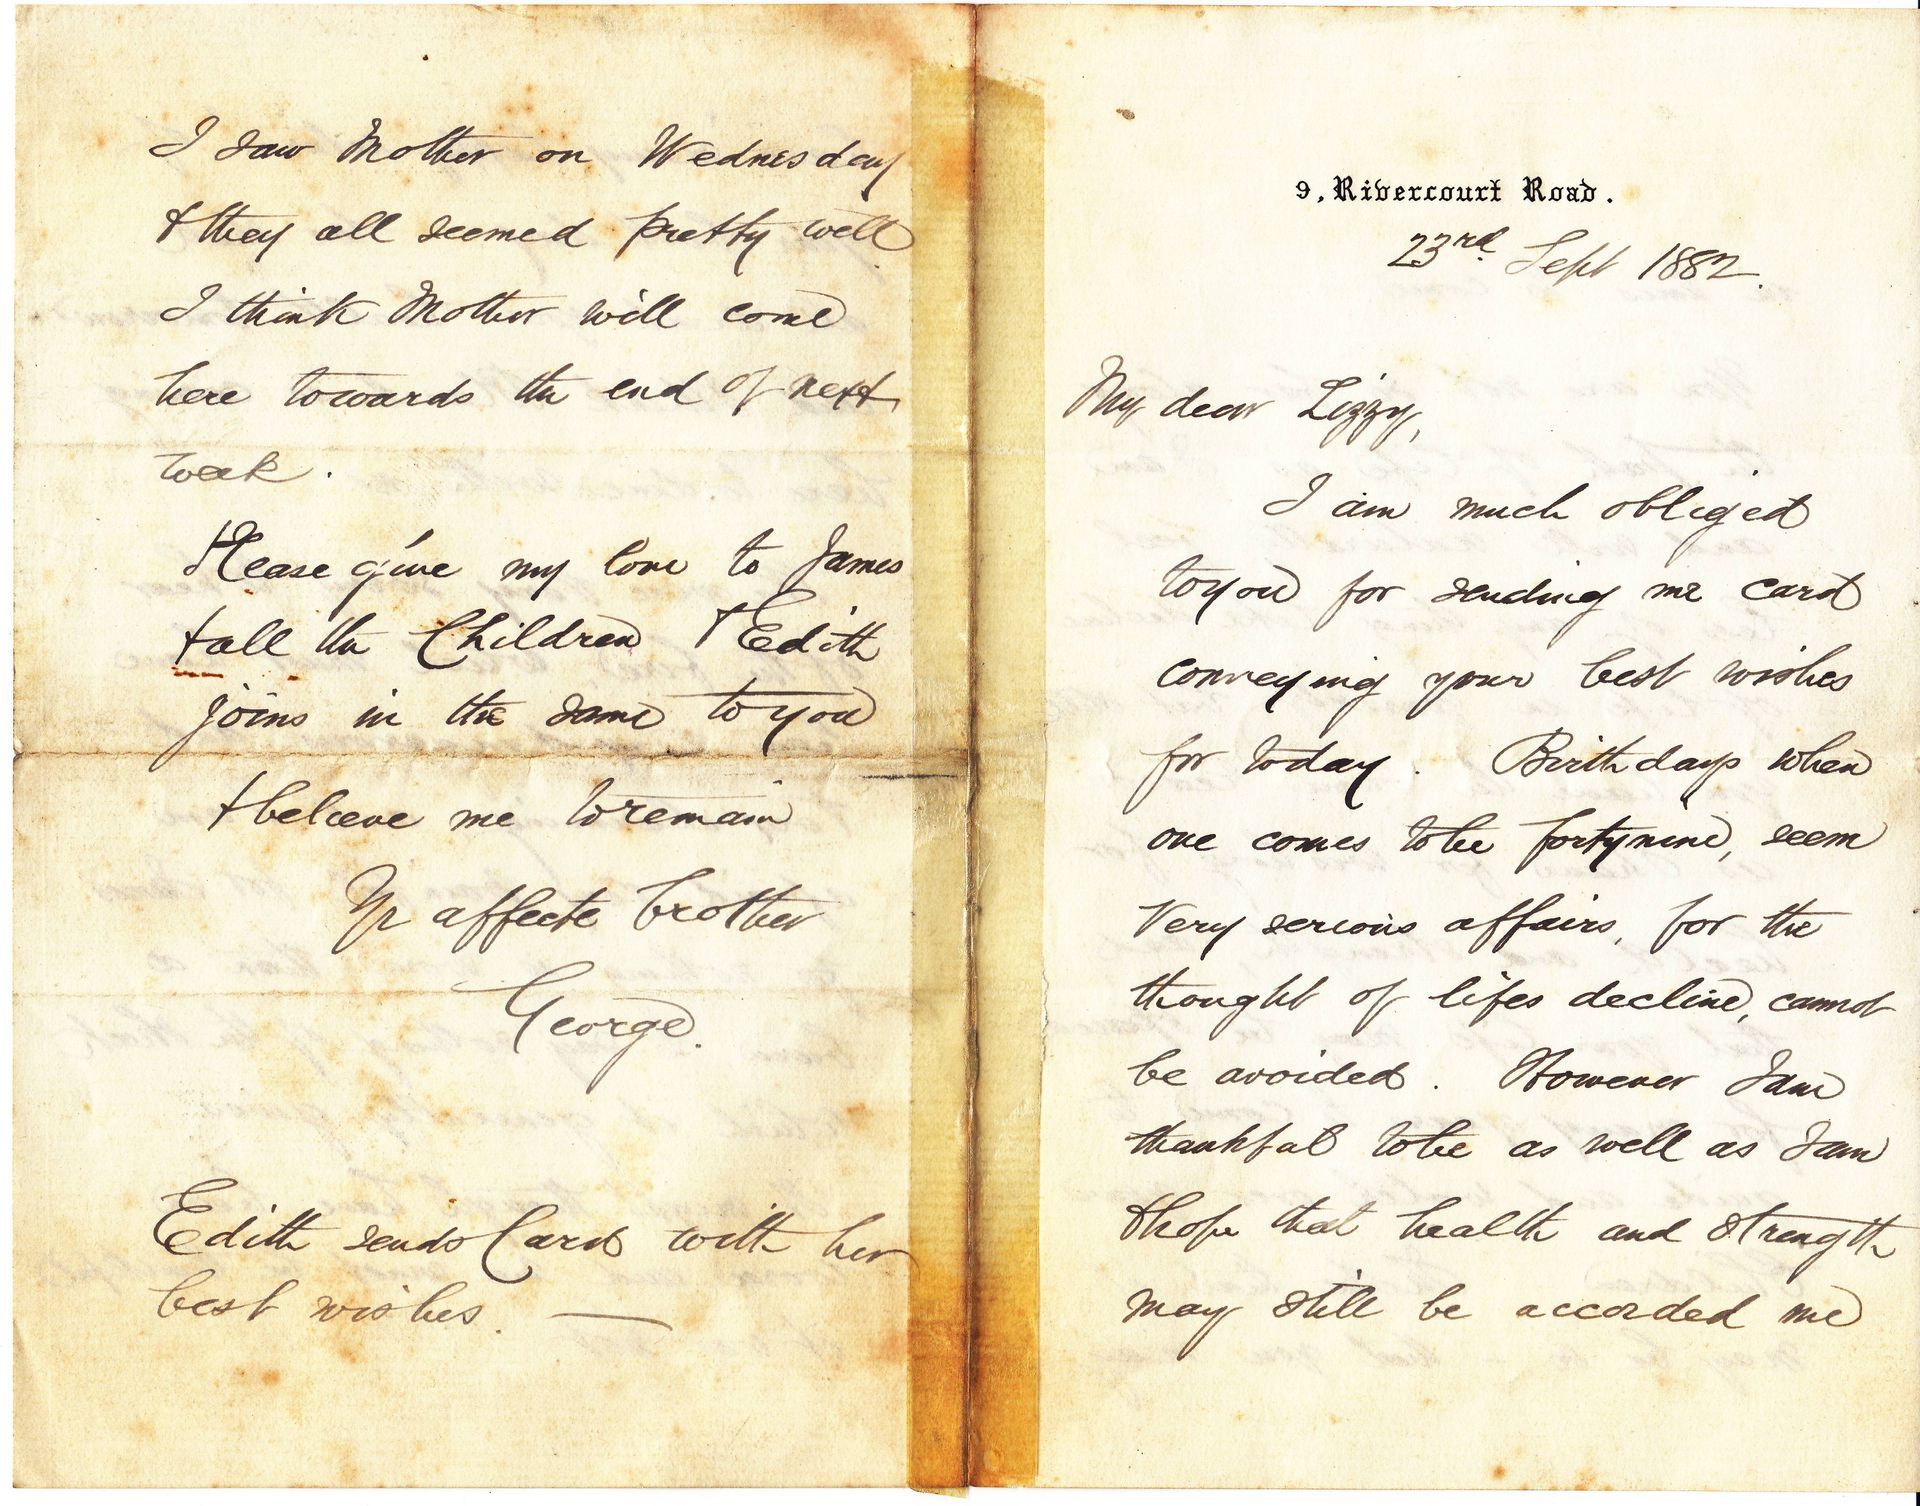 9, Rivercourt Road.
23rd Sept 1882.
My dear Lizzy,
I am much obliged
to you for sending me card
conveying your best wishes
for today. Birthdays when
one comes to be fortynine, seem
very serious affairs, for the
thought of lifes decline, cannot
be avoided. However I am
thankful to be as well as I am
& hope that health and strength
may still be accorded me
I saw Mother on Wednesday
& they all seemed pretty well
I think Mother will come
here towards the end of next
week.
Please give my love to James
& all the Children & Edith
joins in the same to you
& believe me to remain
Yr affecte brother
George.
Edith sends Card with her
best wishes. —